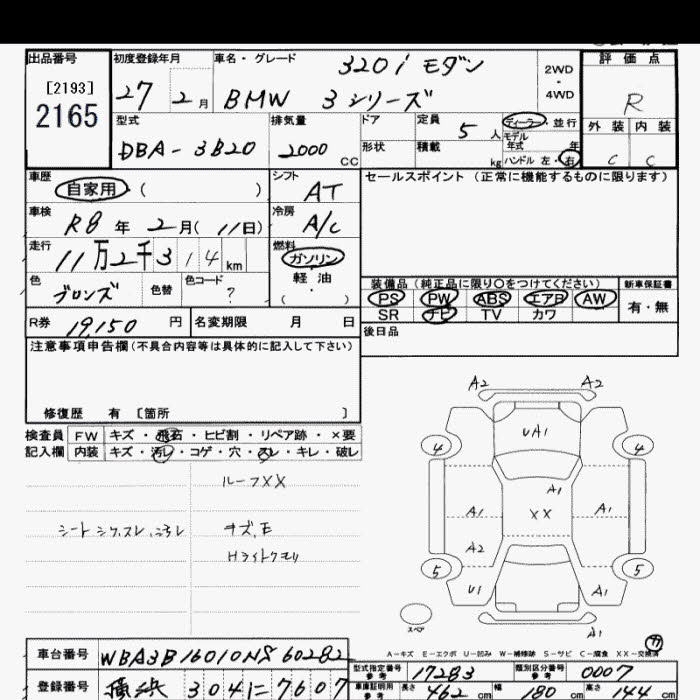 出品番号
[2193]
2165
初度登録年月
27 2 月
車名・グレード
320i モダン
BMW 3シリーズ
2WD
・
4WD
評価点
R
外装 内装
C C
型式
DBA-3B20
排気量
2000 cc
ドア
形状
定員 5 人
積載 kg
ディーラー・並行
モデル
年式 年
ハンドル 左・右
車歴
自家用 ( )
シフト
AT
セールスポイント (正常に機能するものに限ります)
車検
R8 年 2 月( 11日)
冷房
A/C
走行
11万2千314 km
燃料
ガソリン
軽油
( ・ )
色
ブロンズ
色替
色コード
?
装備品 (純正品に限り○をつけてください)
PS PW ABS エアB AW
SR ナビ TV カワ
新車保証書
有・無
R券 19,150 円
名変期限 月 日
後日品
注意事項申告欄(不具合内容等は具体的に記入して下さい)
修復歴 有 〔箇所 〕
検査員
記入欄
FW キズ・飛石・ヒビ割・リペア跡・×要
内装 キズ・汚レ・コゲ・穴・スレ・キレ・破レ
ルーフXX
シートシワ,スレ,汚レ
キズ,E
Hライトクモリ
A2 A2
4 UA1 4
A1
A1 XX A1
A2
5 5
U1 A1
スペア
A1
A-キズ E-エクボ U-凹み W-補修跡 S-サビ C-腐食 XX-交換済
車台番号 WBA3B16010NS60282
登録番号 横浜 304 に 7607
型式指定番号
参考
17283
類別区分番号
参考
0007
車庫証明用
参考
長さ 462 cm 幅 180 cm 高さ 144 cm